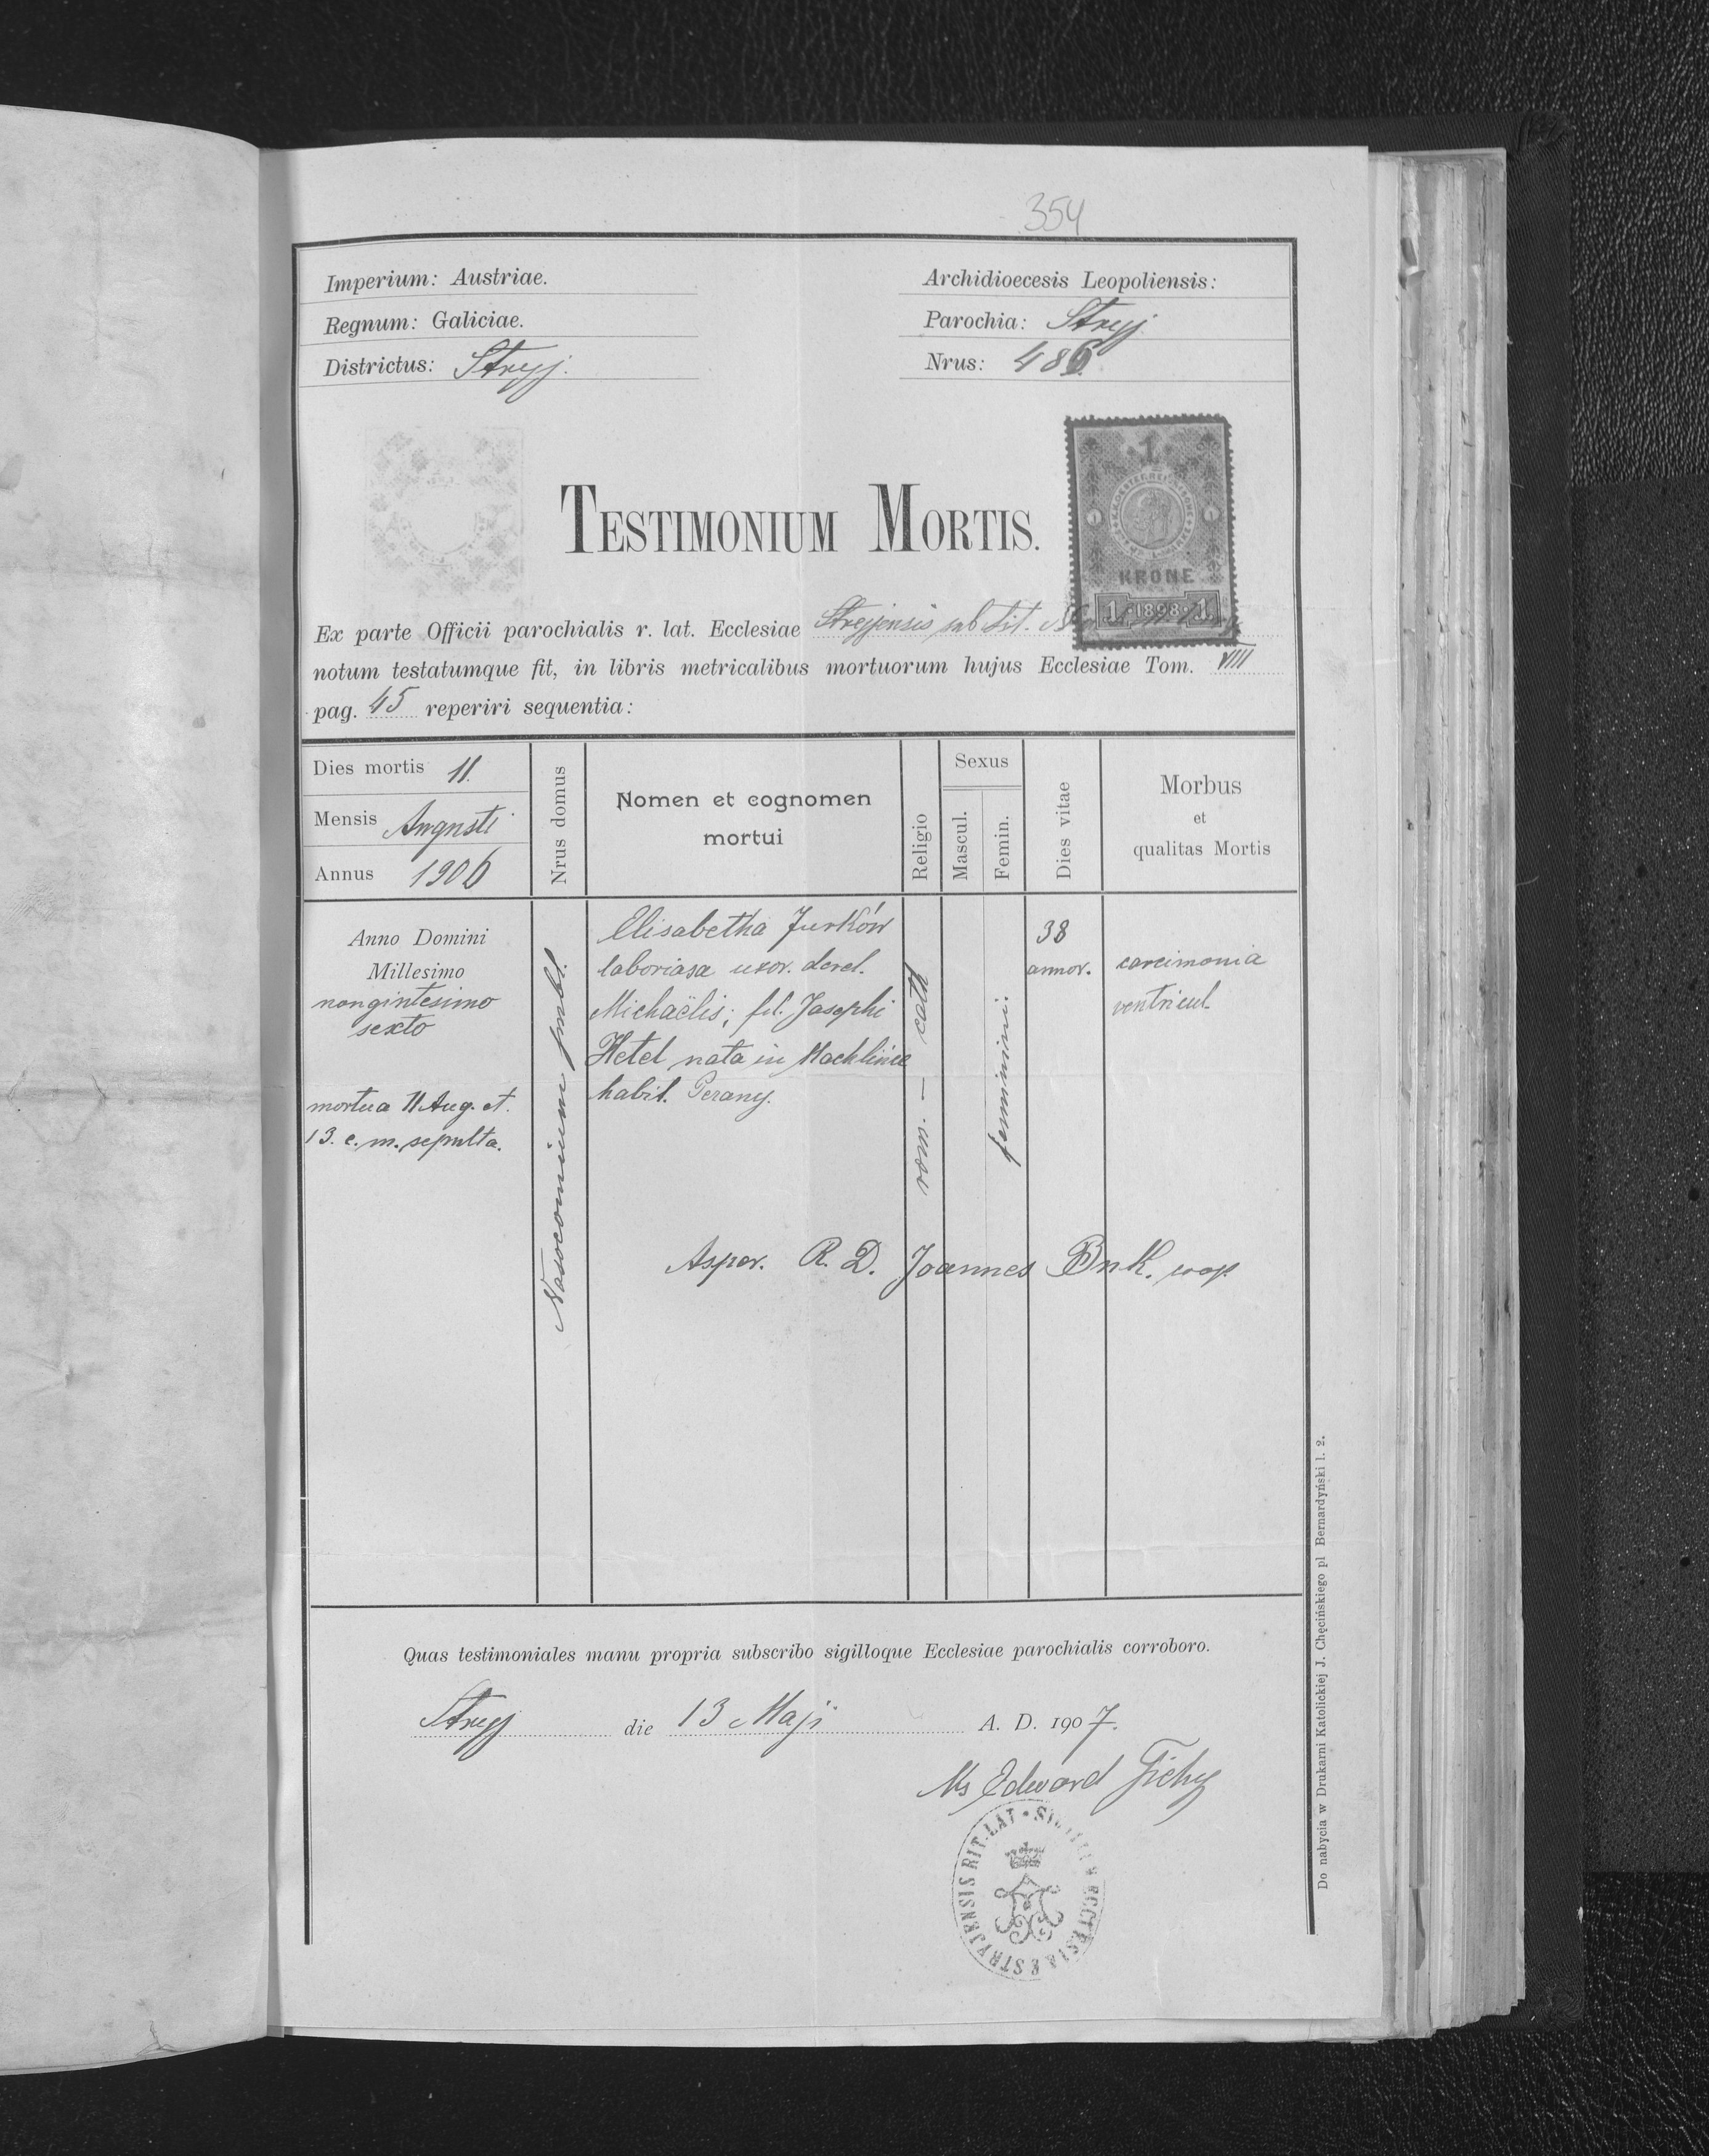 354
Imperium: Austriae.
Regnum: Galiciae.
Districtus: Stryj.
Archidioecesis Leopoliensis:
Parochia: Stryj
Nrus: 486.
1
KRONE
1 1898 1
TESTIMONIUM MORTIS.
Ex parte Officii parochialis r. lat. Ecclesiae Stryjensis sub tit.
notum testatumque fit, in libris metricalibus mortuorum hujus Ecclesiae Tom. VIII
pag. 45 reperiri sequentia:
Dies mortis 11.
Mensis Augusti
Annus 1906
Nrus domus
Nomen et cognomen
mortui
Religio
Sexus
Mascul.
Femin.
Dies vitae
Morbus
et
qualitas Mortis
Anno Domini
Millesimo
nongintesimo
sexto
mortua 11 Aug. et.
13. e. m. sepulta.
Nosocomium publ.
Elisabetha Jurków
laboriosa uxor. derel.
Michaëlis; fil. Josephi
Hetel nata in Machlinie
habit. Perany.
rom. — cath
feminini.
38
annor.
carcimonia
ventricul.
Asper. R. D. Joannes Buk. coop.
Quas testimoniales manu propria subscribo sigilloque Ecclesiae parochialis corroboro.
Stryj die 13 Maji A. D. 1907.
Edward Tichy
ECCLESIAE STRYJENSIS RIT. LAT
Do nabycia w Drukarni Katolickiej J. Chęcińskiego pl Bernardyński l. 2.